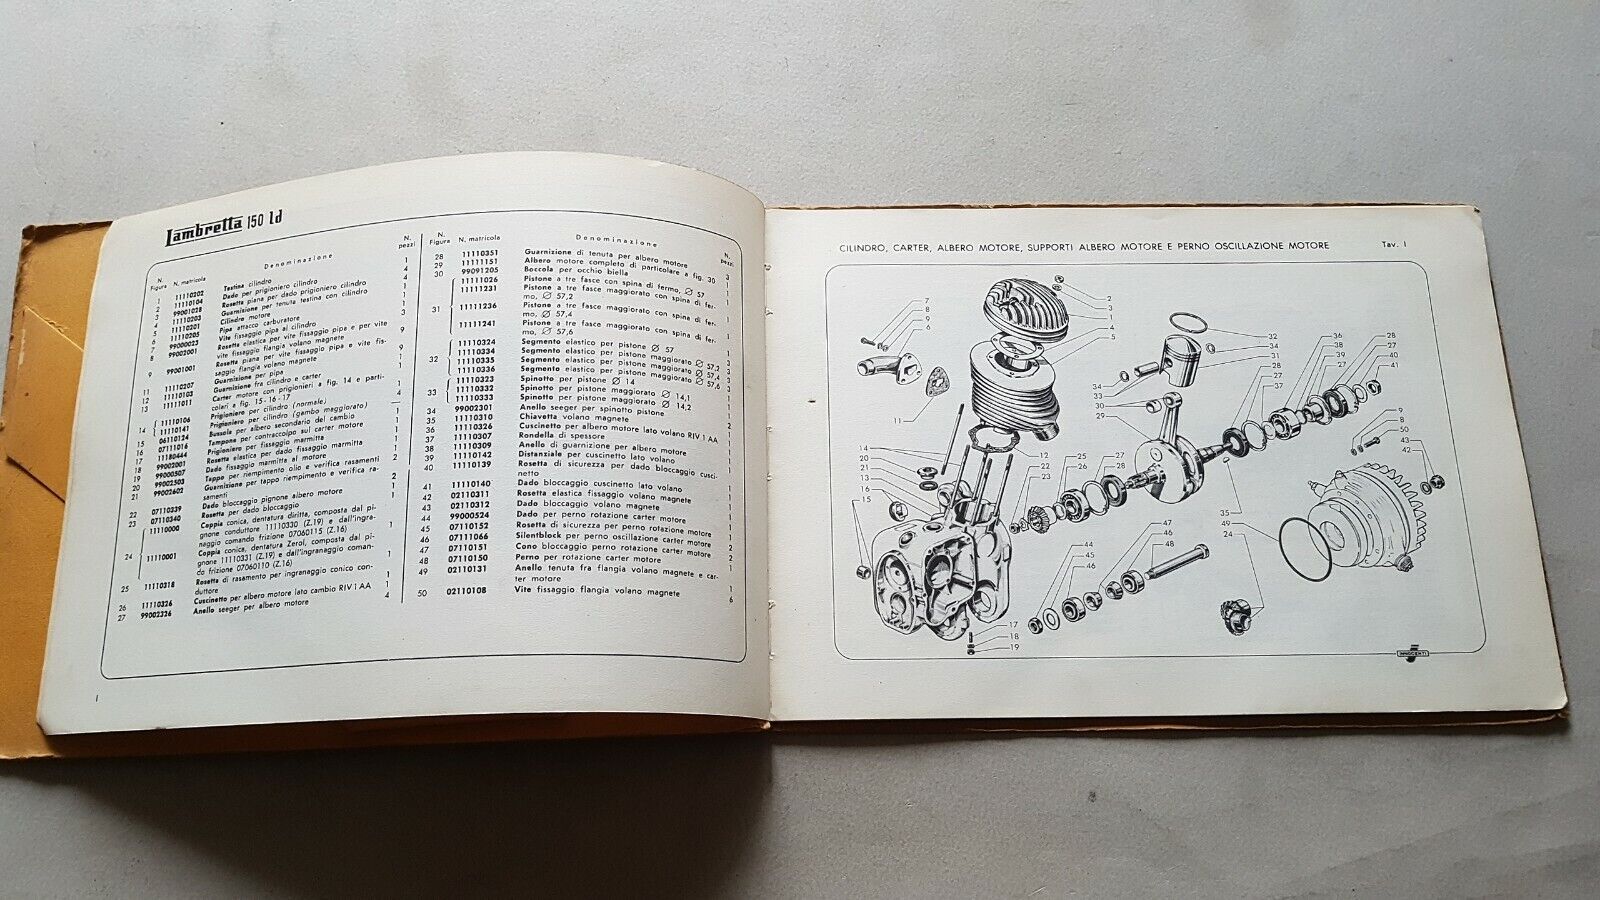 Lambretta 150 ld
N. Figura
N. matricola
Denominazione
N. pezzi
1 11110202 Testina cilindro 1
2 11110104 Dado per prigioniero cilindro 4
3 99001028 Rosetta piana per dado prigioniero cilindro 4
4 11110203 Guarnizione per tenuta testina con cilindro 1
5 11110201 Cilindro motore 1
6 11110205 Pipa attacco carburatore 1
7 99000023 Vite fissaggio pipa al cilindro
8 99002001 Rosetta elastica per vite fissaggio pipa e per vite
vite fissaggio flangia volano magnete 9
9 99001001 Rosetta piana per vite fissaggio pipa e vite fis-
saggio flangia volano magnete 9
11 11110207 Guarnizione per pipa 1
12 11110103 Guarnizione fra cilindro e carter 1
13 11111011 Carter motore con prigionieri a fig. 14 e parti-
colari a fig. 15 - 16 - 17 1
14 11110106 Prigioniero per cilindro (normale) 4
11110141 Prigioniero per cilindro (gambo maggiorato)
15 06110124 Bussola per albero secondario del cambio 1
16 07111016 Tampone per contraccolpo sul carter motore 1
17 11180444 Prigioniero per fissaggio marmitta
18 99002001 Rosetta elastica per dado fissaggio marmitta
19 99000507 Dado fissaggio marmitta al motore
20 99002503 Tappo per riempimento olio e verifica rasamenti 2
21 99002602 Guarnizione per tappo riempimento e verifica ra-
samenti 2
22 07110339 Dado bloccaggio pignone albero motore 1
23 07110340 Rosetta per dado bloccaggio 1
24 11110000 Coppia conica, dentatura diritta, composta dal pi-
gnone conduttore 11110330 (Z.19) e dall'ingra-
naggio comando frizione 07060115 (Z.16) 1
11110001 Coppia conica, dentatura Zerol, composta dal pi-
gnone 11110331 (Z.19) e dall'ingranaggio coman-
do frizione 07060110 (Z.16) 1
25 11110318 Rosetta di rasamento per ingranaggio conico con-
duttore 1
26 11110326 Cuscinetto per albero motore lato cambio RIV 1 AA 1
27 99002326 Anello seeger per albero motore 4
1
N. Figura
N. matricola
Denominazione
N. pezzi
28 11110351 Guarnizione di tenuta per albero motore 3
29 11111151 Albero motore completo di particolare a fig. 30 1
30 99091205 Boccola per occhio biella 1
31 11111026 Pistone a tre fasce con spina di fermo, Ø 57 1
11111231 Pistone a tre fasce maggiorato con spina di fer-
mo, Ø 57,2 1
11111236 Pistone a tre fasce maggiorato con spina di fer-
mo, Ø 57,4 1
11111241 Pistone a tre fasce maggiorato con spina di fer-
mo, Ø 57,6 1
32 11110324 Segmento elastico per pistone Ø 57 3
11110334 Segmento elastico per pistone maggiorato Ø 57,2 3
11110335 Segmento elastico per pistone maggiorato Ø 57,4 3
11110336 Segmento elastico per pistone maggiorato Ø 57,6 3
33 11110323 Spinotto per pistone Ø 14 1
11110332 Spinotto per pistone maggiorato Ø 14,1 1
11110333 Spinotto per pistone maggiorato Ø 14,2 1
34 99002301 Anello seeger per spinotto pistone 2
35 11110310 Chiavetta volano magnete 1
36 11110326 Cuscinetto per albero motore lato volano RIV 1 AA 1
37 11110307 Rondella di spessore 1
38 11110309 Anello di guarnizione per albero motore 1
39 11110142 Distanziale per cuscinetto lato volano 1
40 11110139 Rosetta di sicurezza per dado bloccaggio cusci-
netto 1
41 11110140 Dado bloccaggio cuscinetto lato volano 1
42 02110311 Rosetta elastica fissaggio volano magnete 1
43 02110312 Dado bloccaggio volano magnete 1
44 99000524 Dado per perno rotazione carter motore 1
45 07110152 Rosetta di sicurezza per perno rotazione 1
46 07111066 Silentblock per perno oscillazione carter motore 2
47 07110151 Cono bloccaggio perno rotazione carter motore 2
48 07110150 Perno per rotazione carter motore 1
49 02110131 Anello tenuta fra flangia volano magnete e car-
ter motore 1
50 02110108 Vite fissaggio flangia volano magnete 6
CILINDRO, CARTER, ALBERO MOTORE, SUPPORTI ALBERO MOTORE E PERNO OSCILLAZIONE MOTORE
Tav. I
7
8
9
6
2
3
1
4
5
32
34
31
33
34
30
29
36
38
39
27
37
28
27
40
41
11
14
20
21
13
16
15
12
22
23
25
26
27
28
35
49
24
9
8
50
43
42
44
45
46
47
46
48
17
18
19
INNOCENTI